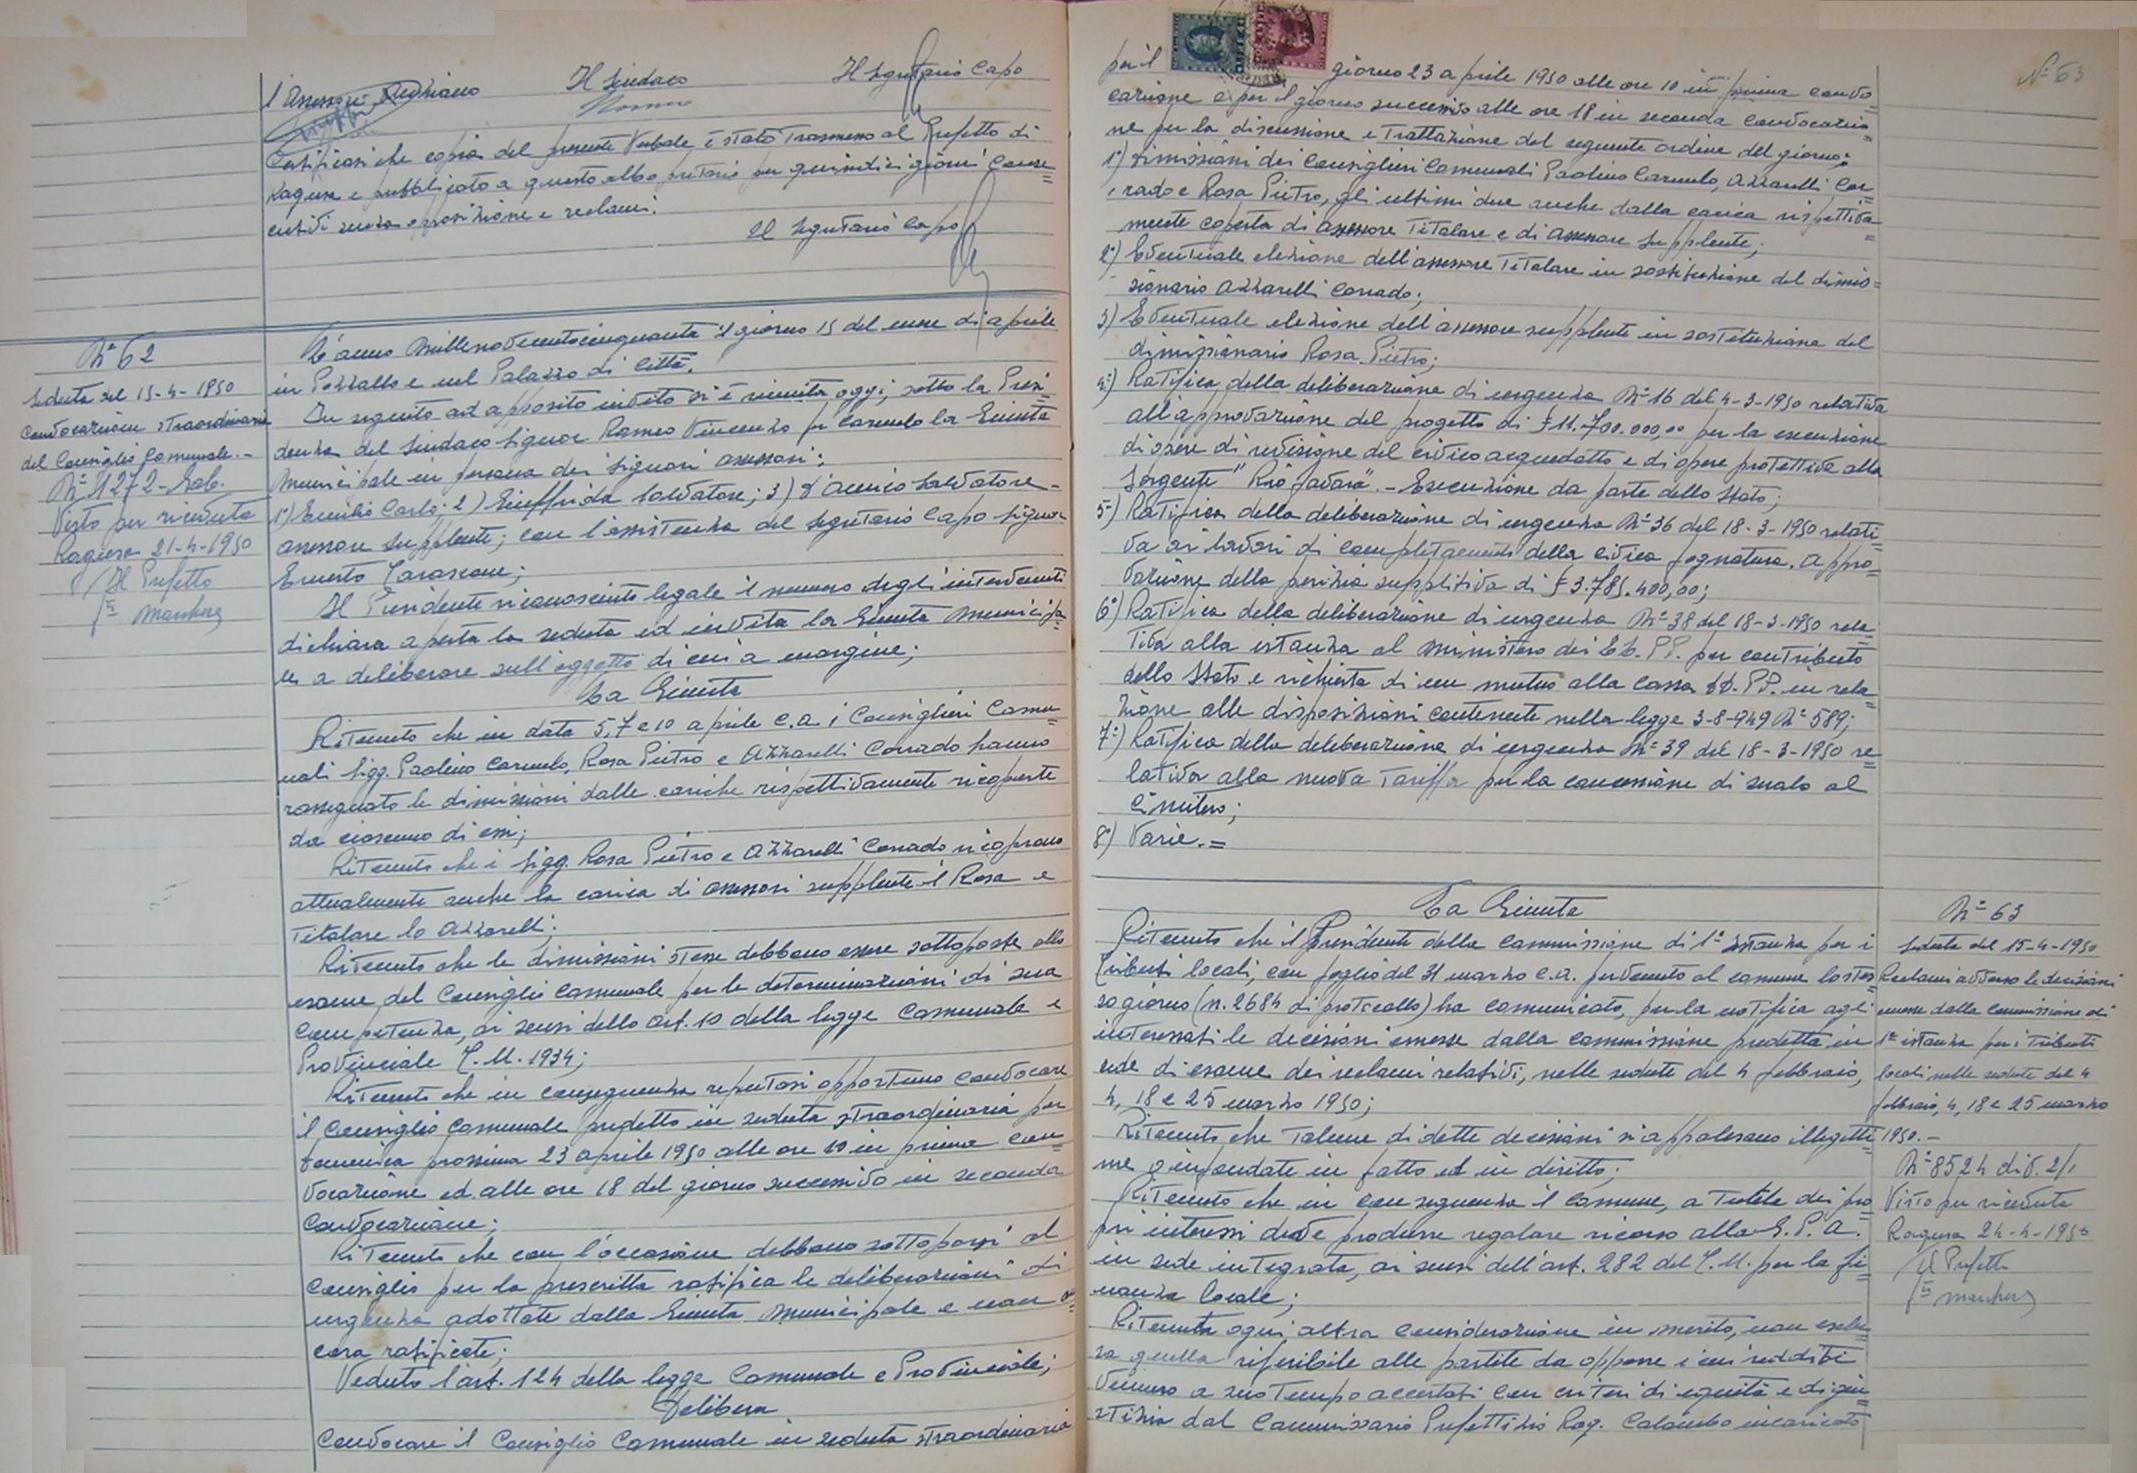 l'Assessore Anziano
Il Sindaco
Il Segretario Capo
Certificasi che copia del presente Verbale è stato Trasmesso al Prefetto di
Ragusa e pubblicato a questo albo pretorio per quindici giorni conse=
cutivi senza opposizione e reclami.
Il Segretario Capo
N° 62
Seduta del 15-4-1950
Convocazione straordinaria
del Consiglio Comunale.-
N° 1272-Gab.
Visto per ricevuta
Ragusa 21-4-1950
Il Prefetto
L'anno Millenovecentocinquanta il giorno 15 del mese di aprile
in Pozzallo e nel Palazzo di Città.
In seguito ad apposito invito si è riunita oggi, sotto la Presi
denza del Sindaco Signor Romeo Vincenzo fu Carmelo la Giunta
Municipale in persona dei Signori assessori:
1°) Emilio Carlo; 2) Giuffrida Salvatore; 3) D'Amico Salvatore-
assessore supplente; con l'assistenza del Segretario Capo Signor
Ernesto Tarascone;
Il Presidente riconosciuto legale il numero degli intervenuti
dichiara aperta la seduta ed invita la Giunta Municipa=
le a deliberare sull'oggetto di cui a margine;
La Giunta
Ritenuto che in data 5,7 e 10 aprile c.a i Consiglieri Comu=
nali Sigg. Paolino Carmelo, Rosa Pietro e Azzarelli Corrado hanno
rassegnato le dimissioni dalle cariche rispettivamente ricoperte
da ciascuno di essi;
Ritenuto che i Sigg. Rosa Pietro e Azzarelli Corrado ricoprono
attualmente anche la carica di assessori supplente il Rosa e
Titolare lo Azzarelli;
Ritenuto che le dimissioni stesse debbono essere sottoposte allo
esame del Consiglio Comunale per le determinazioni di sua
competenza, ai sensi dello art. 10 della legge Comunale e
Provinciale T.U. 1934;
Ritenuto che in conseguenza reputasi opportuno convocare
il Consiglio Comunale predetto in seduta straordinaria per
domenica prossima 23 aprile 1950 alle ore 10 in prima con=
vocazione ed alle ore 18 del giorno successivo in seconda
convocazione;
Ritenuto che con l'occasione debbono sottoporsi al
Consiglio per la prescritta ratifica le deliberazioni di
urgenza adottate dalla Giunta Municipale e non an=
cora ratificate;
Veduto l'art. 124 della legge Comunale e Provinciale;
Delibera
Convocare il Consiglio Comunale in seduta straordinaria
N° 63
per il giorno 23 aprile 1950 alle ore 10 in prima convo=
cazione e per il giorno successivo alle ore 18 in seconda convocazio=
ne per la discussione e trattazione del seguente ordine del giorno:
1°) Dimissioni dei Consiglieri Comunali Paolino Carmelo, Azzarelli Cor=
rado e Rosa Pietro, gli ultimi due anche dalla carica rispettiva=
mente coperta di assessore Titolare e di assessore supplente;
2°) Eventuale elezione dell'assessore Titolare in sostituzione del dimis=
sionario Azzarelli Corrado;
3) Eventuale elezione dell'assessore supplente in sostituzione del
dimissionario Rosa Pietro;
4°) Ratifica della deliberazione di urgenza N° 16 del 4-3-1950 relativa
all'approvazione del progetto di £ 11.700.000,00 per la esecuzione
di opere di revisione del civico acquedotto e di opere protettive alla
sorgente "Rio Favara".- Esecuzione da parte dello Stato;
5°) Ratifica della deliberazione di urgenza N° 36 del 18-3-1950 relati=
va ai lavori di completamento della civica fognatura. Appro=
vazione della perizia suppletiva di £ 3.785.400,00;
6°) Ratifica della deliberazione di urgenza N° 38 del 18-3-1950 rela=
tiva alla istanza al Ministero dei LL. PP. per contributo
dello Stato e richiesta di un mutuo alla Cassa DD. PP. in rela=
zione alle disposizioni contenute nella legge 3-8-949 N° 589;
7°) Ratifica della deliberazione di urgenza N° 39 del 18-3-1950 re=
lativa alla nuova Tariffa per la concessione di suolo al
Cimitero;
8°) Varie.=
La Giunta
Ritenuto che il Presidente della Commissione di 1ª Istanza per i
Tributi locali, con foglio del 31 marzo c.a. pervenuto al comune lo stes=
so giorno (n. 2684 di protocollo) ha comunicato, per la notifica agli
interessati le decisioni emesse dalla commissione predetta in
sede di esame dei reclami relativi, nelle sedute del 4 febbraio,
4, 18 e 25 marzo 1950;
Ritenuto che talune di dette decisioni si appalesano illegitti=
me o infondate in fatto ed in diritto;
Ritenuto che in conseguenza il Comune, a tutela dei pro
pri interessi deve produrre regolare ricorso alla G.P.A.
in sede integrata, ai sensi dell'art. 282 del T.U. per la fi=
nanza locale;
Ritenuta ogni altra considerazione in merito, non esclu=
sa quella riferibile alle partite da opporre i cui redditi
vennero a suo tempo accertati con criteri di equità e di giu=
stizia dal Commissario Prefettizio Rag. Colombo incaricato
N° 63
Seduta del 15-4-1950
Reclami avverso le decisioni
emesse dalla commissione di
1ª istanza per i Tributi
locali nelle sedute del 4
febbraio, 4, 18 e 25 marzo
1950.-
N° 8524 div. 2/1
Visto per ricevuta
Ragusa 24-4-1950
Il Prefetto